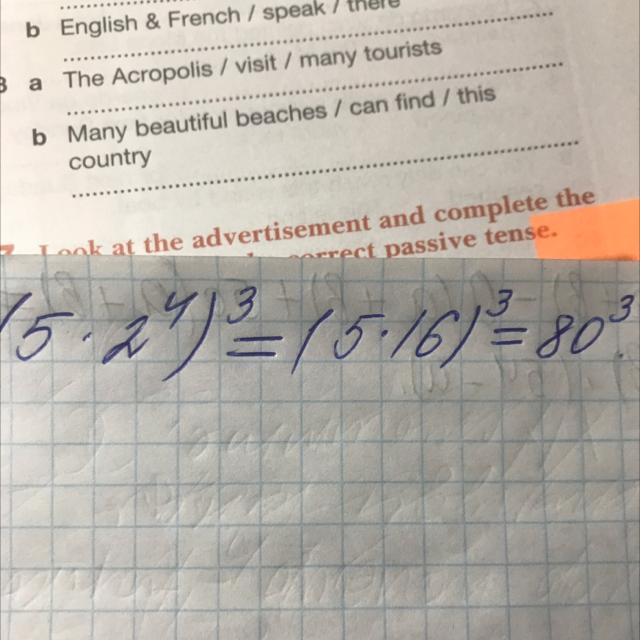 b English & French / speak / there
a The Acropolis / visit / many tourists
b Many beautiful beaches / can find / this
country
Look at the advertisement and complete the
correct passive tense.
(5·2⁴)³=(5·16)³=80³